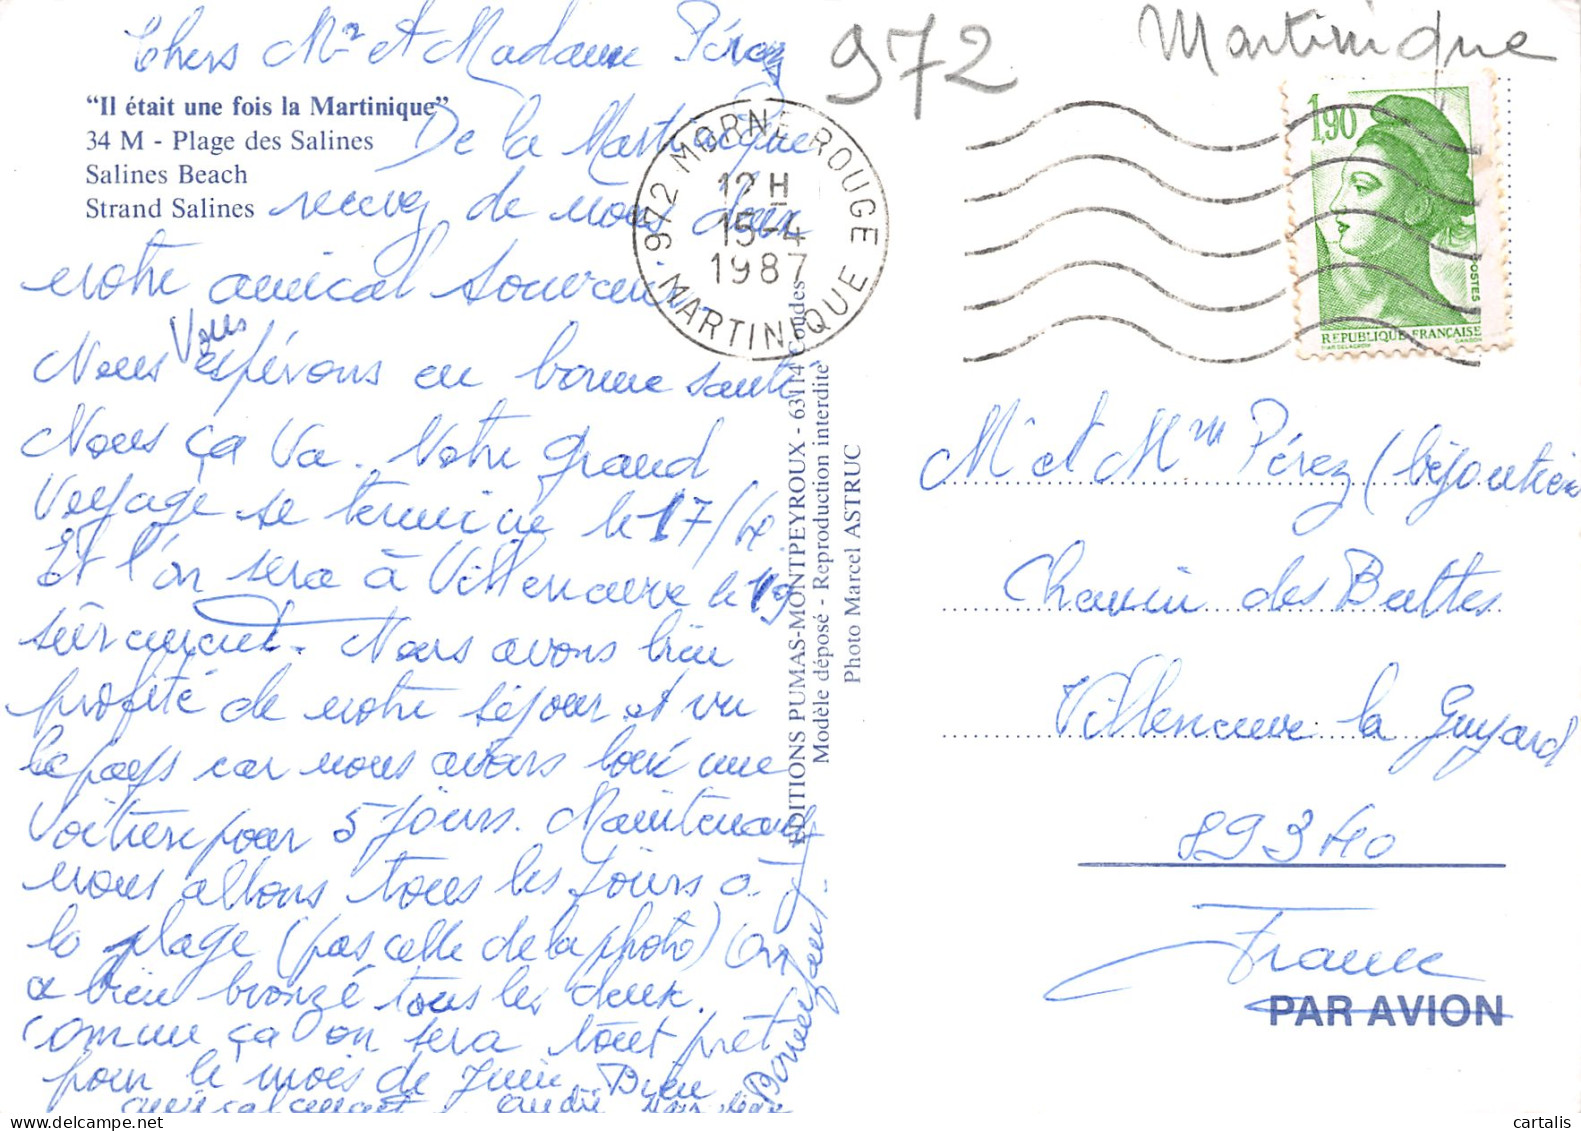 Chers Mr et Madame Pérez
"Il était une fois la Martinique"
34 M - Plage des Salines
Salines Beach
Strand Salines
De la Martinique
recevez de nous deux
notre amical souvenir.
Nous Vous espérons en bonne santé
Nous ça va. Notre grand
Voyage se termine le 17/4.
Et l'on sera à Villeneuve le 19
sûrement. Nous avons bien
profité de notre séjour et vu
le pays car nous avons loué une
voiture pour 5 jours. Maintenant
nous allons tous les jours à
la plage (pas celle de la photo) On
a bien bronzé tous les deux.
comme ça on sera tout prêt
pour le mois de Juin. Bien
amicalement. André
Bonne
EDITIONS PUMAS-MONTPEYROUX - 63114 Coudes
Modèle déposé - Reproduction interdite
Photo Marcel ASTRUC
972 MORNE ROUGE
12 H
15-4
1987
MARTINIQUE
972
Martinique
1,90
POSTES
REPUBLIQUE FRANÇAISE
D'AP. DELACROIX
GANDON
Mr et Mme Pérez (bijoutier
Chemin des Buttes
Villeneuve la Guyard
89340
France
PAR AVION
cartalis